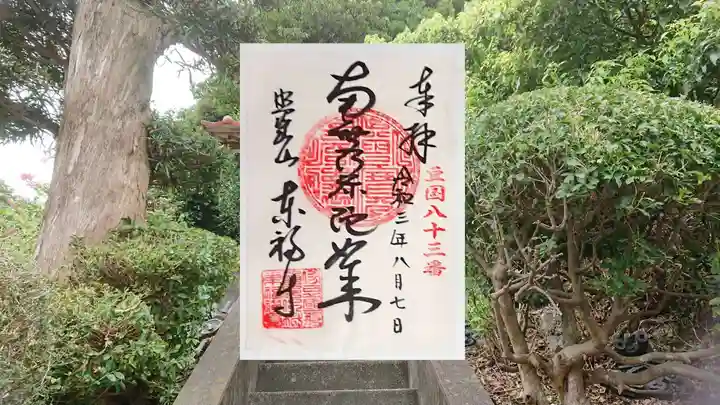 豆国八十三番
奉拝
令和三年八月七日
南無阿弥陀如来
山 東福寺